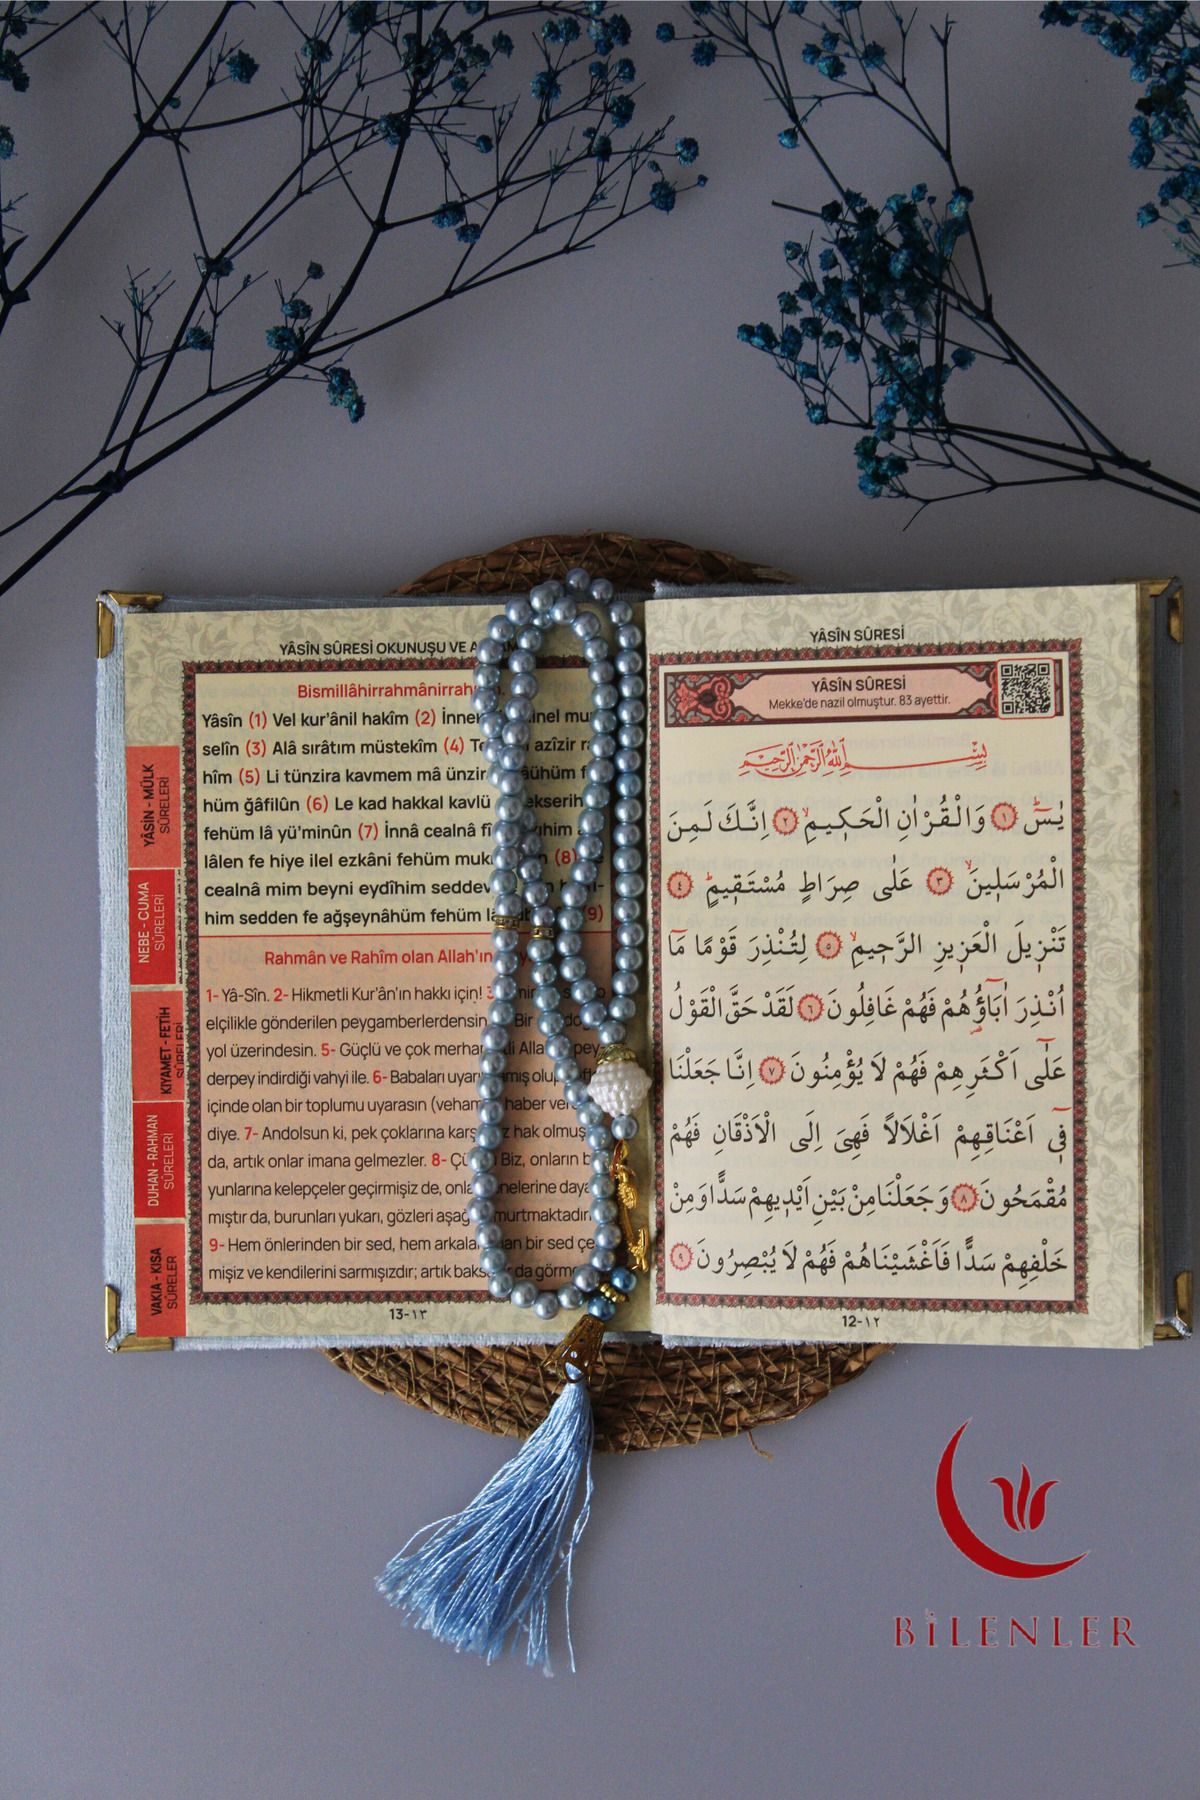 YÂSÎN SÛRESİ OKUNUŞU VE
Bismillâhirrahmânirrahîm.
Yâsîn (1) Vel kur'ânil hakîm (2)
selîn (3) Alâ sırâtım müstekîm (4)
hîm (5) Li tünzira kavmem mâ
hüm ğâfilûn (6) Le kad hakkal kavlü
fehüm lâ yü'minûn (7) İnnâ cealnâ
lâlen fe hiye ilel ezkâni fehüm (8)
cealnâ mim beyni eydîhim
him sedden fe ağşeynâhüm fehüm (9)
Rahmân ve Rahîm olan Allah'ın
1- Yâ-Sîn. 2- Hikmetli Kur'ân'ın hakkı için!
elçilikle gönderilen peygamberlerdensin.
yol üzerindesin. 5- Güçlü ve çok pey-
derpey indirdiği vahyi ile. 6- Babaları
içinde olan bir toplumu uyarasın haber
diye. 7- Andolsun ki, pek çoklarına hak
da, artık onlar imana gelmezler. 8- Biz, onların
yunlarına kelepçeler geçirmişiz de,
mıştır da, burunları yukarı, gözleri
9- Hem önlerinden bir sed, hem bir sed
mişiz ve kendilerini sarmışızdır; artık da
13-١٣
YÂSİN - MÜLK
SÛRELERİ
NEBE - CUMA
SÛRELERİ
KIYAMET - FETİH
SÛRELERİ
DUHAN - RAHMAN
SÛRELERİ
VAKIA - KISA
SÛRELER
YÂSÎN SÛRESİ
YÂSÎN SÛRESİ
Mekke'de nazil olmuştur. 83 ayettir.
بِسْمِ اللهِ الرَّحْمٰنِ الرَّحِيمِ
يٰسٓ ﴿١﴾ وَالْقُرْاٰنِ الْحَكِيمِۙ ﴿٢﴾ اِنَّكَ لَمِنَ
الْمُرْسَلِينَۙ ﴿٣﴾ عَلٰى صِرَاطٍ مُسْتَقِيمٍۜ ﴿٤﴾
تَنْزِيلَ الْعَزِيزِ الرَّحِيمِۙ ﴿٥﴾ لِتُنْذِرَ قَوْمًا مَٓا
اُنْذِرَ اٰبَٓاؤُهُمْ فَهُمْ غَافِلُونَ ﴿٦﴾ لَقَدْ حَقَّ الْقَوْلُ
عَلٰٓى اَكْثَرِهِمْ فَهُمْ لَا يُؤْمِنُونَ ﴿٧﴾ اِنَّا جَعَلْنَا
فِٓي اَعْنَاقِهِمْ اَغْلَالًا فَهِيَ اِلَى الْاَذْقَانِ فَهُمْ
مُقْمَحُونَ ﴿٨﴾ وَجَعَلْنَا مِنْ بَيْنِ اَيْدِيهِمْ سَدًّا وَمِنْ
خَلْفِهِمْ سَدًّا فَاَغْشَيْنَاهُمْ فَهُمْ لَا يُبْصِرُونَ ﴿٩﴾
12-١٢
BİLENLER